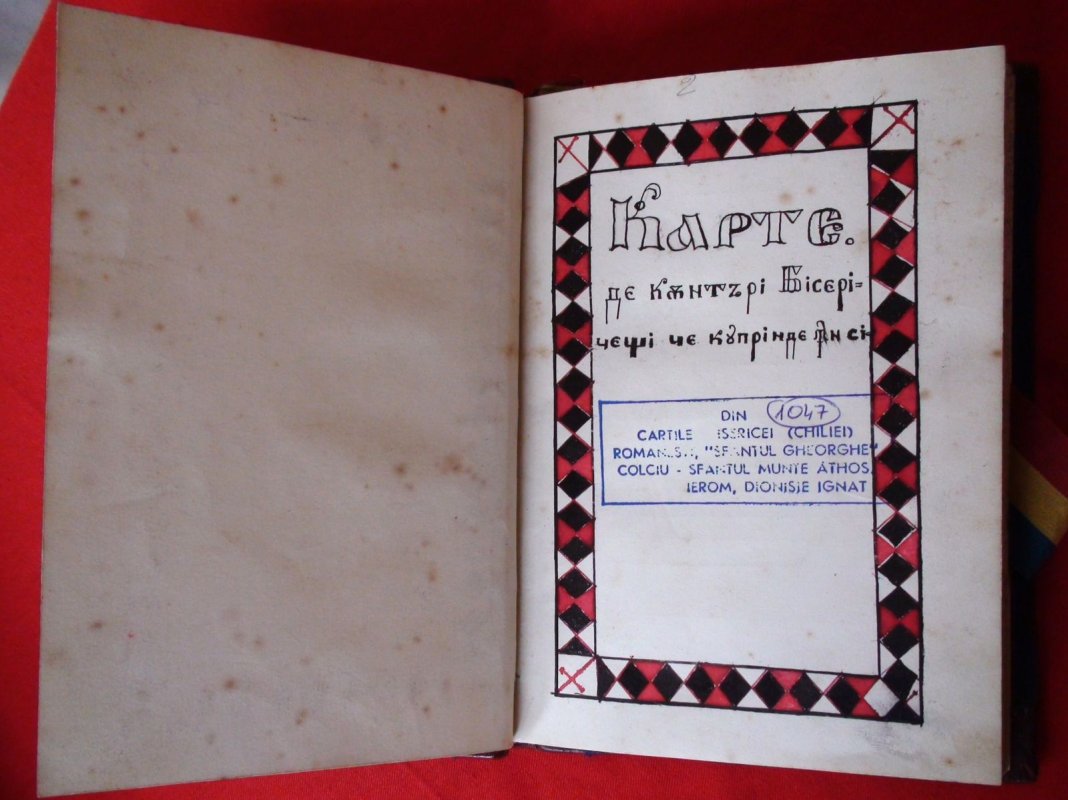 2
Карте.
де кѫнтърі Бісері=
чещі че кꙋпрінде ꙟн сі-
DIN 1047
CARTILE BISERICEI (CHILIEI)
ROMANESTI, "SFANTUL GHEORGHE"
COLCIU - SFANTUL MUNTE ATHOS.
IEROM, DIONISIE IGNAT